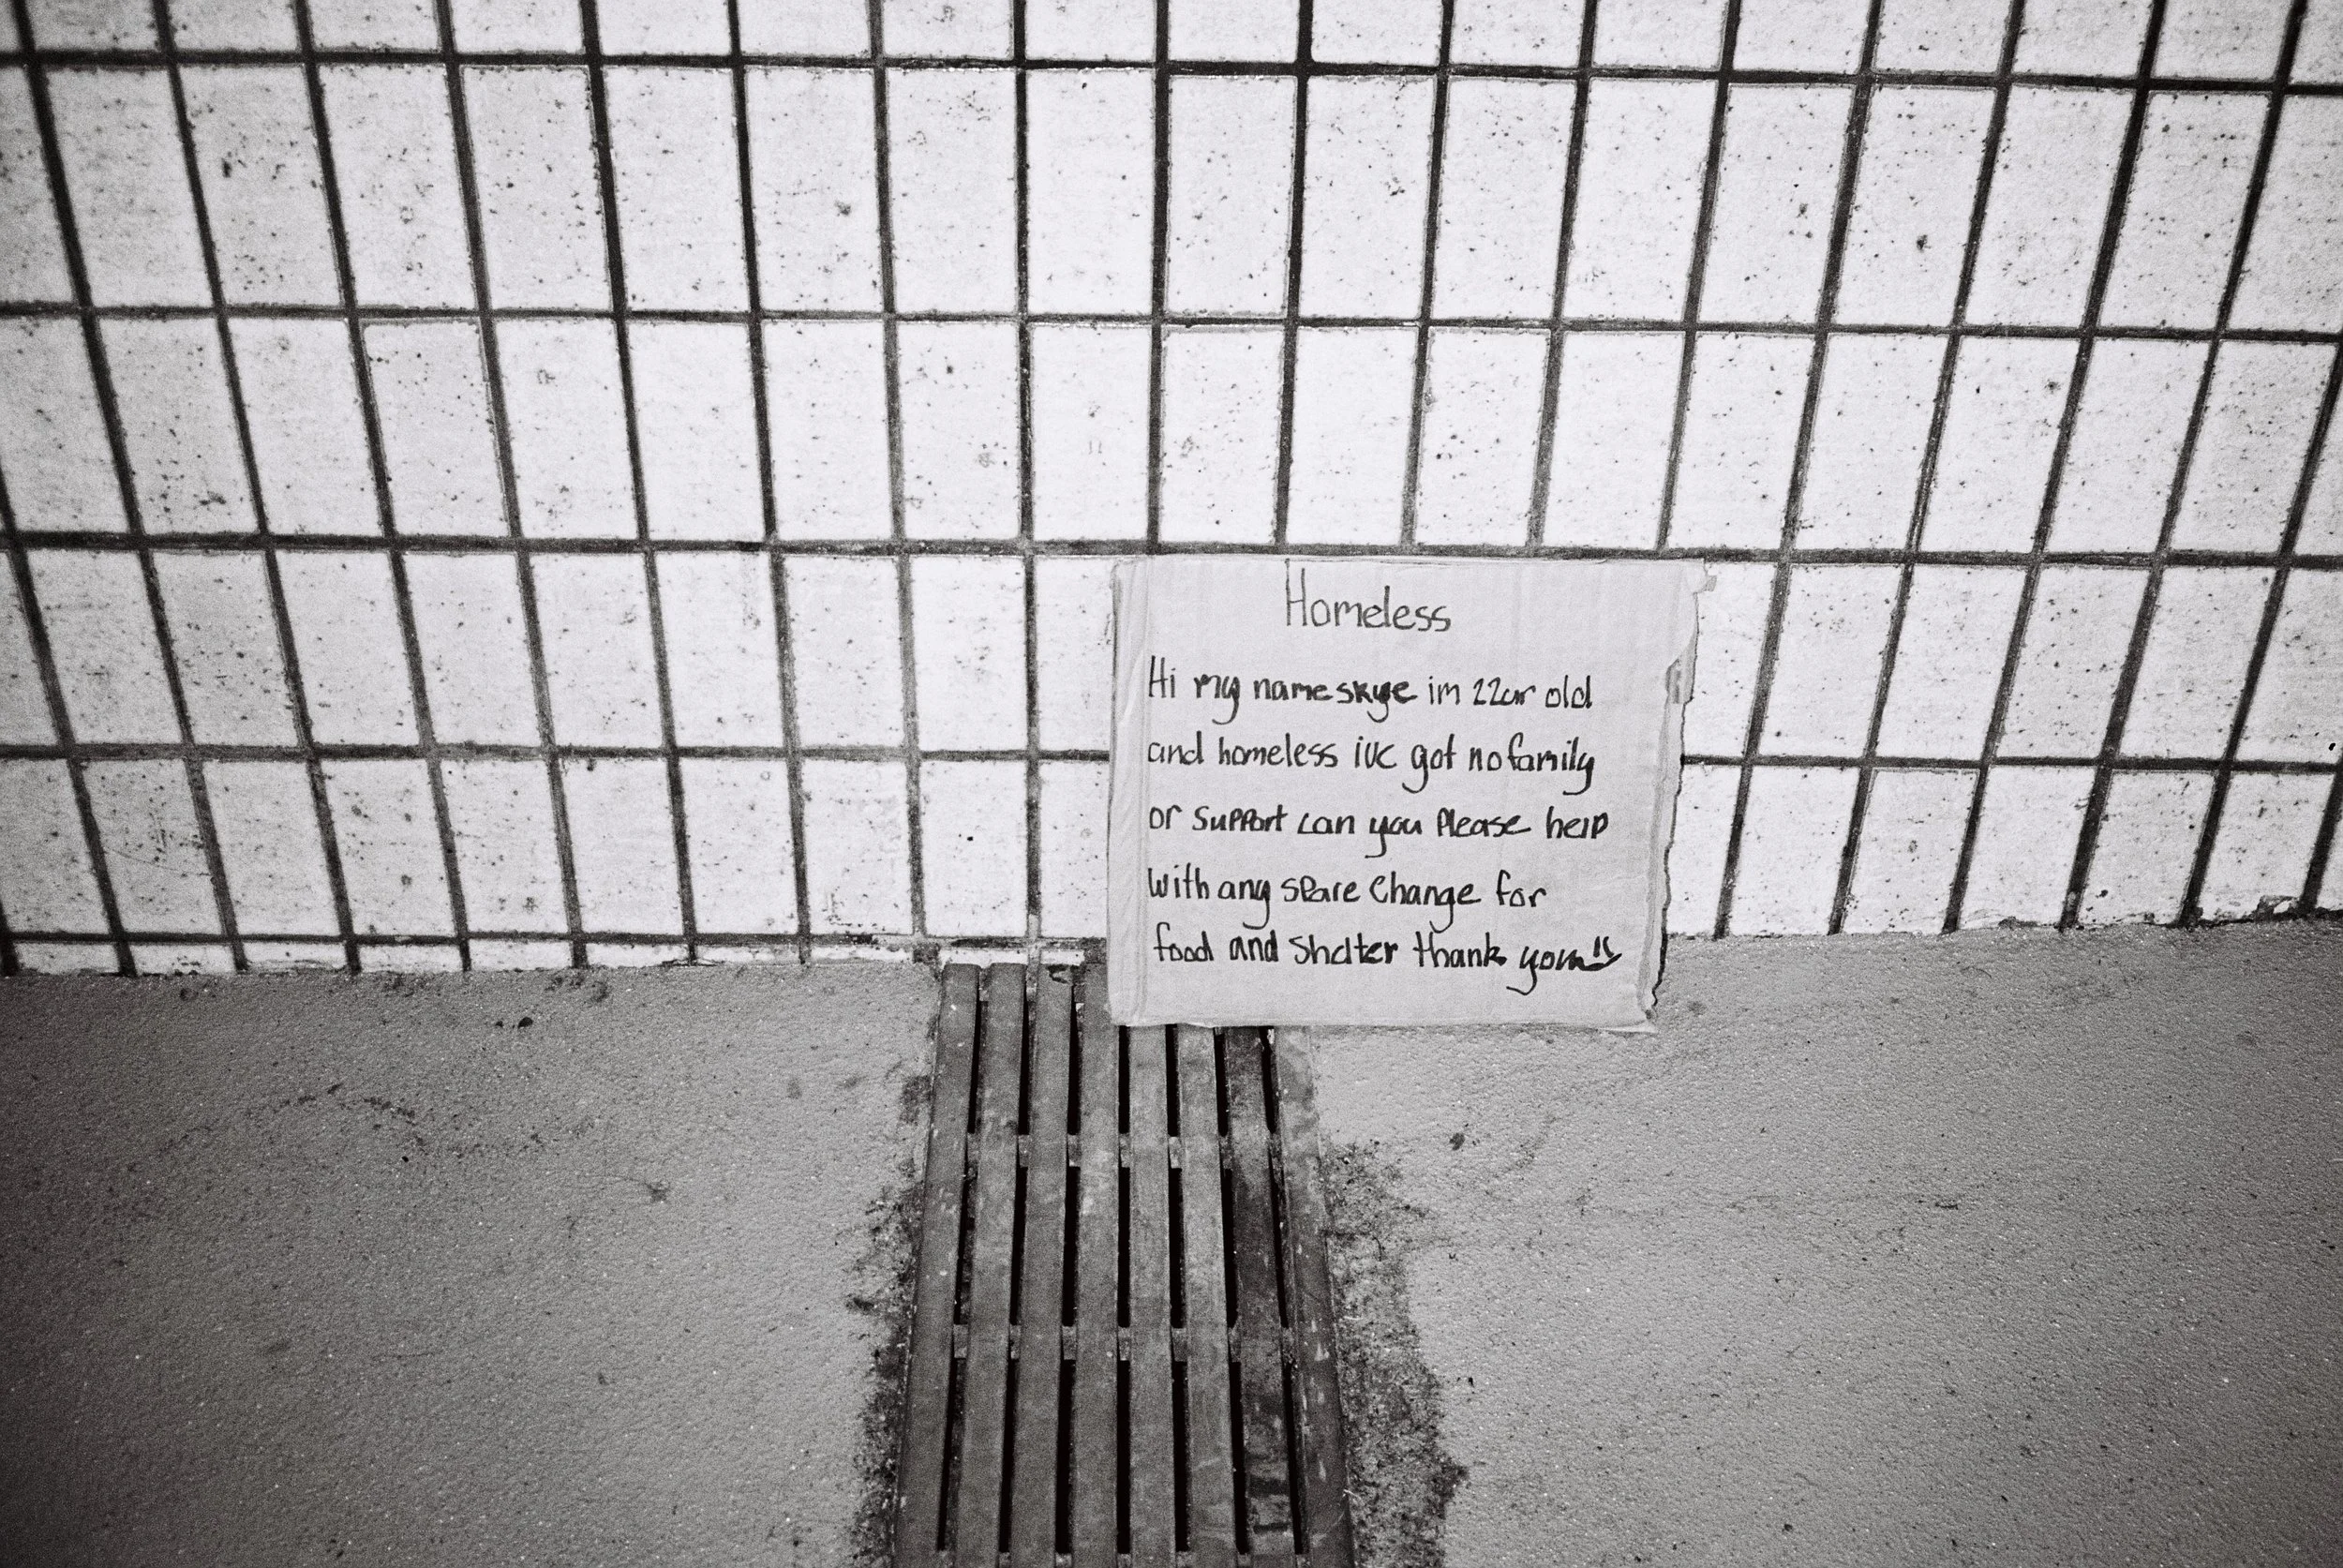 Homeless
Hi my name skye im 22yr old
and homeless ive got no family
or support can you please help
with any spare change for
food and shelter thank you